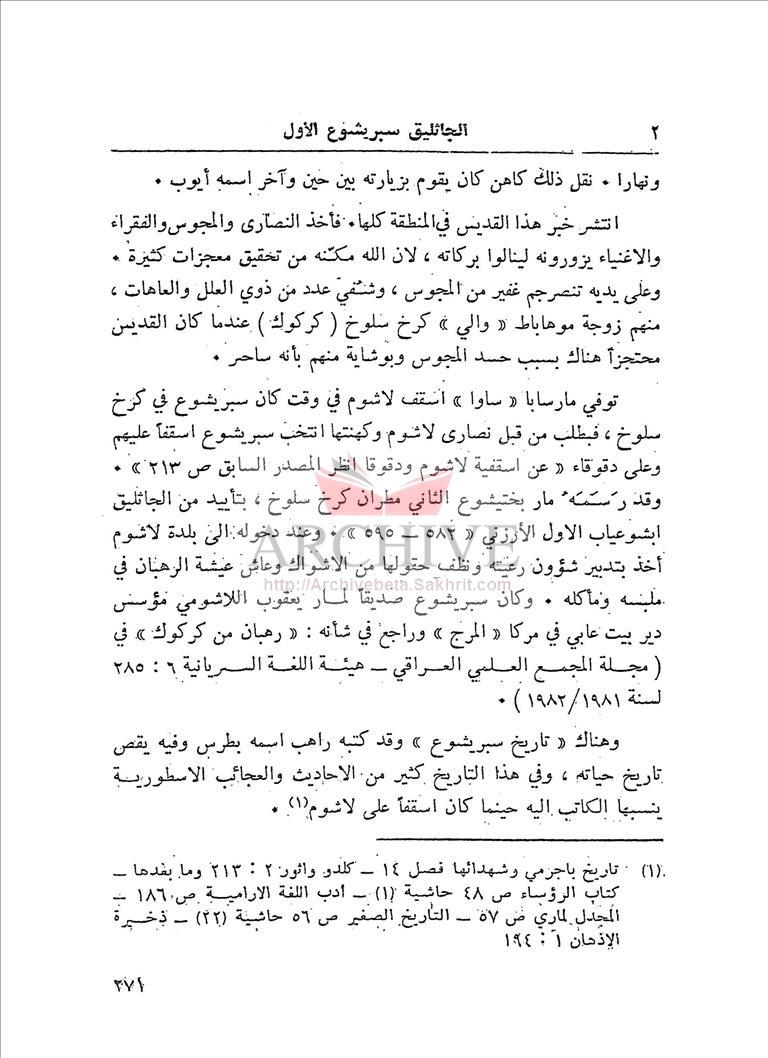 ٢ الجاثليق سبريشوع الأول
ونهارا ٠ نقل ذلك كاهن كان يقوم بزيارته بين حين وآخر اسمه أيوب ٠
انتشر خبر هذا القديس في المنطقة كلها٠ فأخذ النصارى والمجوس والفقراء
والاغنياء يزورونه لينالوا بركاته ، لان الله مكّنه من تحقيق معجزات كثيرة ٠
وعلى يديه تنصرجم غفير من المجوس ، وشُفيَ عدد من ذوي العلل والعاهات ،
منهم زوجة موهاباط « والي » كرخ سلوخ ( كركوك ) عندما كان القديس
محتجزاً هناك بسبب حسد المجوس وبوشاية منهم بأنه ساحر ٠
توفي مارسابا « ساوا » اسقف لاشوم في وقت كان سبريشوع في كرخ
سلوخ ، فبطلب من قبل نصارى لاشوم وكهنتها انتخب سبريشوع اسقفاً عليهم
وعلى دقوقاء « عن اسقفية لاشوم ودقوقا انظر المصدر السابق ص ٢١٣ » ٠
وقد رَسَمَهُ مار بختيشوع الثاني مطران كرخ سلوخ ، بتأييد من الجاثليق
ايشوعياب الاول الأرزني « ٥٨٢ ــ ٥٩٥ » ٠ وعند دخوله الى بلدة لاشوم
أخذ بتدبير شؤون رعيته ونظف حقولها من الاشواك وعاش عيشة الرهبان في
ملبسه ومأكله ٠ وكان سبريشوع صديقاً لمار يعقوب اللاشومي مؤسس
دير بيت عابي في مركا « المرج » وراجع في شأنه : « رهبان من كركوك » في
( مجلة المجمع العلمي العراقي ــ هيئة اللغة السريانية ٦ : ٢٨٥
لسنة ١٩٨١/١٩٨٢ ) ٠
وهناك « تاريخ سبريشوع » وقد كتبه راهب اسمه بطرس وفيه يقص
تاريخ حياته ، وفي هذا التاريخ كثير من الاحاديث والعجائب الاسطورية
ينسبها الكاتب اليه حينما كان اسقفاً على لاشوم(١) ٠
ARCHIVE
http://Archivebeta.Sakhrit.com
(١) تاريخ باجرمي وشهدائها فصل ١٤ ــ كلدو واثور ٢ : ٢١٣ وما بعدها ــ
كتاب الرؤساء ص ٤٨ حاشية (١) ــ أدب اللغة الارامية ص ١٨٦ ــ
المجدل لماري ص ٥٧ ــ التاريخ الصغير ص ٥٦ حاشية (٢٢) ــ ذخيرة
الاذهان ١ : ١٩٤
٢٧١